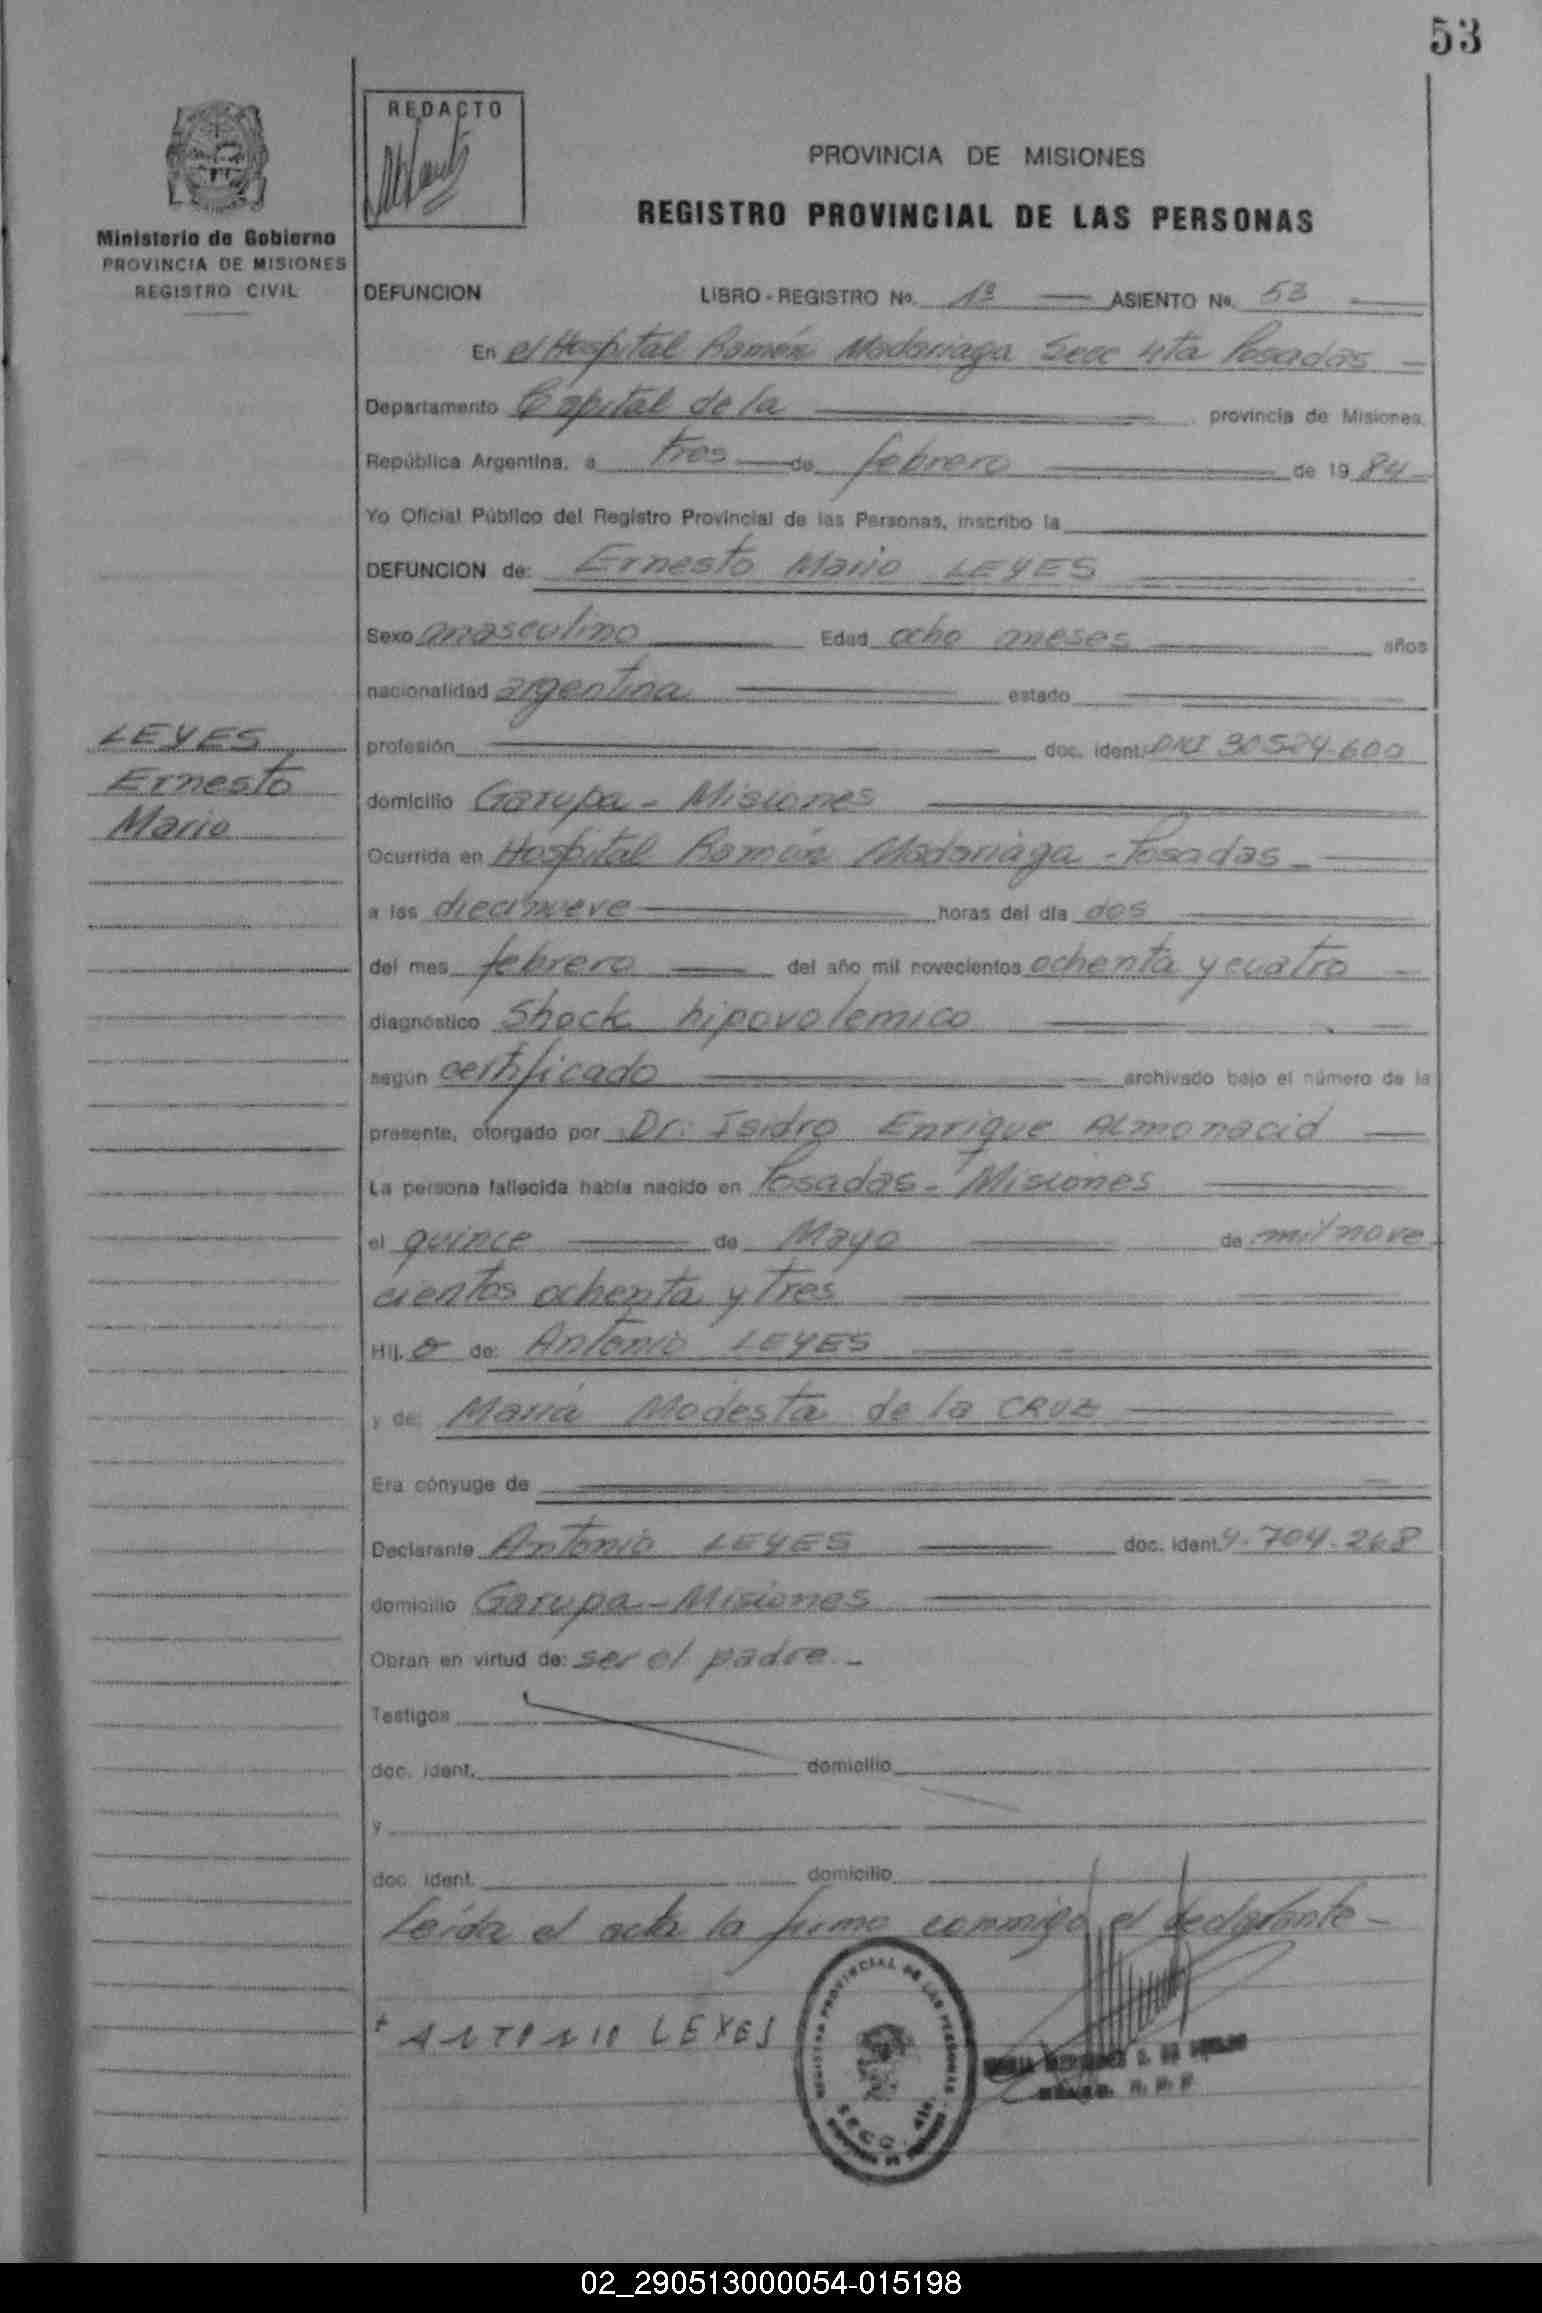 53
REDACTO
PROVINCIA DE MISIONES
REGISTRO PROVINCIAL DE LAS PERSONAS
Ministerio de Gobierno
PROVINCIA DE MISIONES
REGISTRO CIVIL
DEFUNCION LIBRO - REGISTRO No. 1º ASIENTO No. 53
En el Hospital Ramón Madariaga Secc 4ta Posadas
Departamento Capital de la provincia de Misiones,
República Argentina, a tres de febrero de 1984
Yo Oficial Público del Registro Provincial de las Personas, inscribo la
DEFUNCION de: Ernesto Mario LEYES
Sexo masculino Edad ocho meses años
nacionalidad argentina estado
LEYES
Ernesto
Mario
profesión doc. ident. DNI 30524.600
domicilio Garupa - Misiones
Ocurrida en Hospital Ramón Madariaga - Posadas
a las diecinueve horas del día dos
del mes febrero del año mil novecientos ochenta y cuatro
diagnóstico Shock hipovolemico
según certificado archivado bajo el número de la
presente, otorgado por Dr. Isidro Enrique ALMONACID
La persona fallecida había nacido en Posadas - Misiones
el quince de Mayo de mil nove
cientos ochenta y tres
Hij o de: Antonio LEYES
y de: María Modesta de la CRUZ
Era cónyuge de
Declarante Antonio LEYES doc. ident. 4.704.268
domicilio Garupa - Misiones
Obran en virtud de: ser el padre.-
Testigos
doc. ident. domicilio
y
doc. ident. domicilio
Leída el acta la firma conmigo el declarante -
+ ANTONIO LEYES
REGISTRO PROVINCIAL DE LAS PERSONAS
SECC. 4ta.
02_290513000054-015198